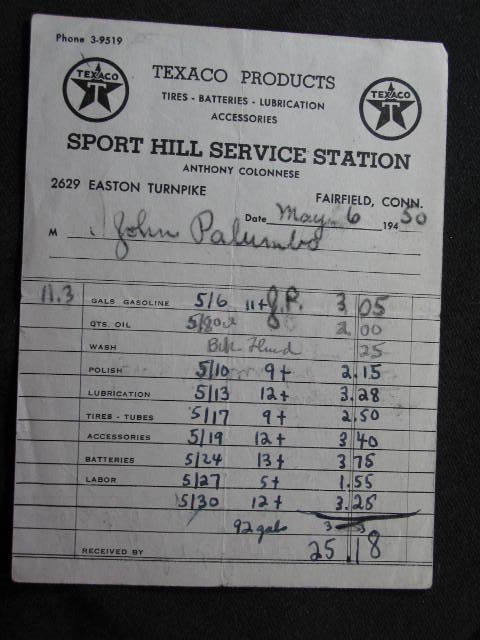 Phone 3-9519
TEXACO T TEXACO PRODUCTS TEXACO T
TIRES - BATTERIES - LUBRICATION
ACCESSORIES
SPORT HILL SERVICE STATION
ANTHONY COLONNESE
2629 EASTON TURNPIKE FAIRFIELD, CONN.
Date May 6 194 50
M John Palumbo
11.3 GALS GASOLINE 5/6 11+ J.P. 3 05
QTS. OIL 5/8 2 00
WASH Fluid 25
POLISH 5/10 9+ 2.15
LUBRICATION 5/13 12+ 3.28
TIRES - TUBES 5/17 9+ 2.50
ACCESSORIES 5/19 12+ 3 40
BATTERIES 5/24 13+ 3 75
LABOR 5/27 5+ 1.55
5/30 12+ 3.25
92 gals 3 3
RECEIVED BY 25 18